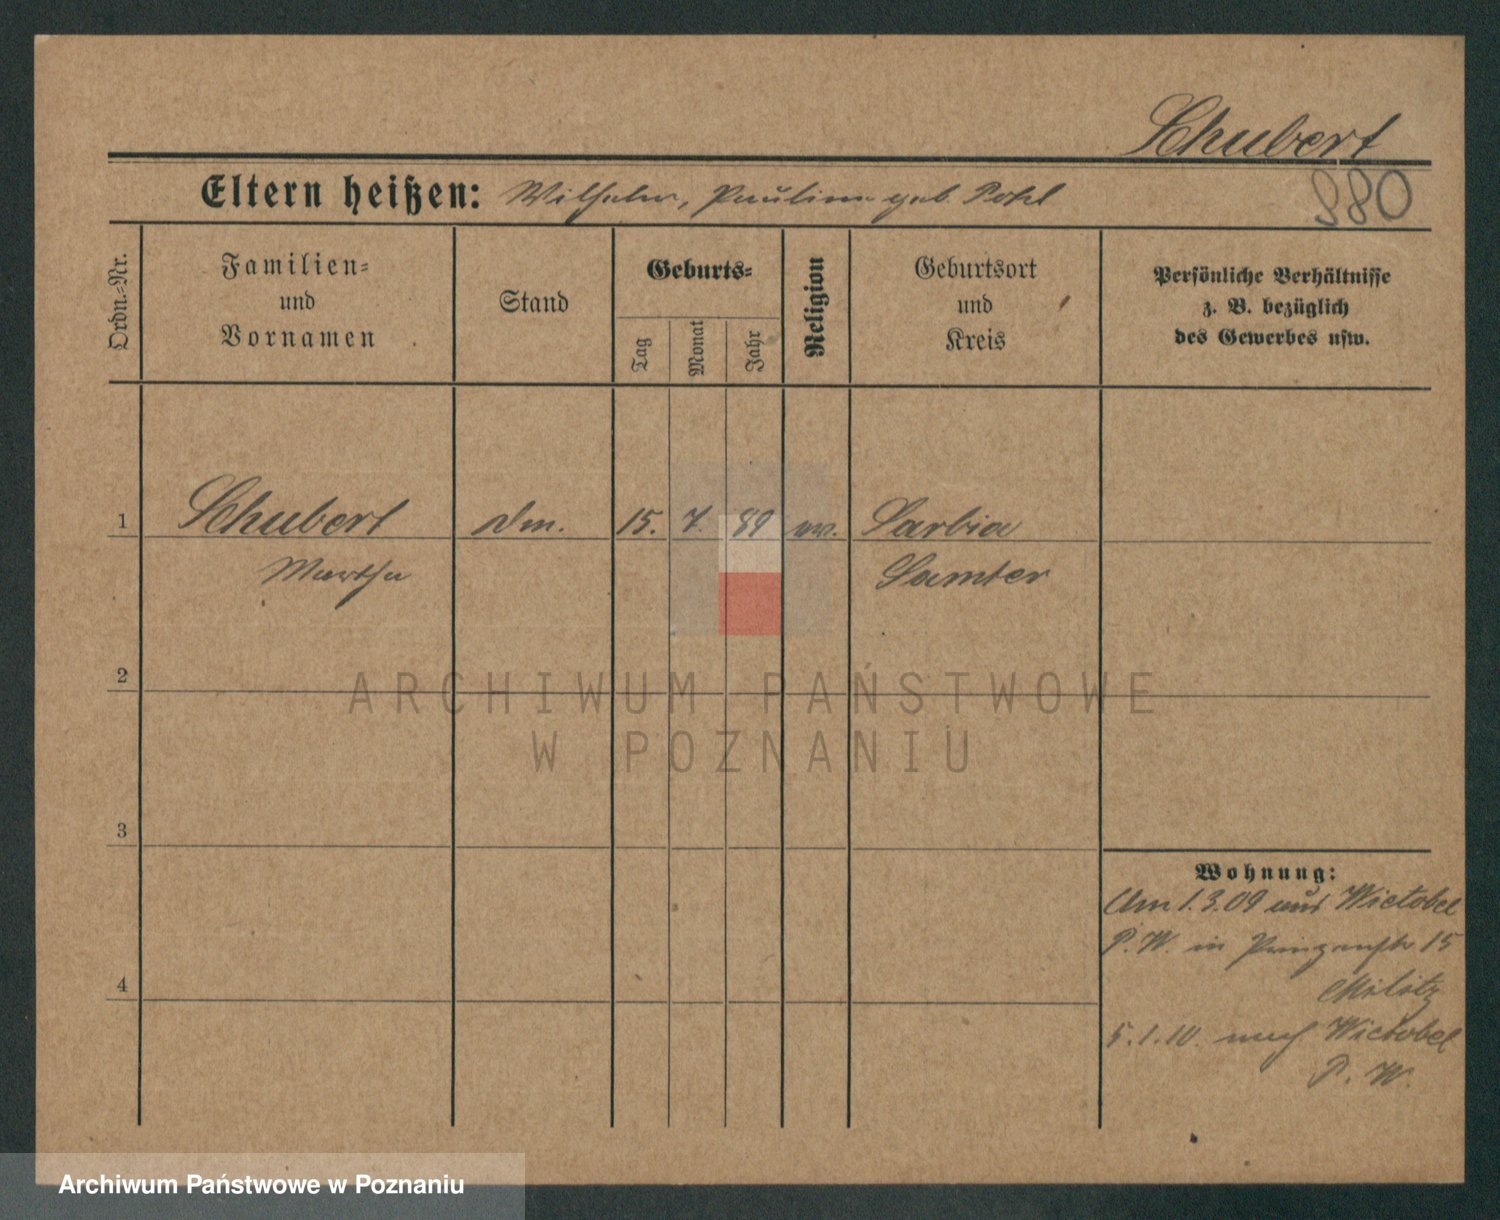 Schubert
Eltern heißen: Wilhelm, Pauline geb. Pohl
980
Ordn.=Nr.
Familien=
und
Vornamen
Stand
Geburts=
Tag
Monat
Jahr
Religion
Geburtsort
und
Kreis
Persönliche Verhältnisse
z. B. bezüglich
des Gewerbes usw.
1 Schubert Dm. 15. 7. 89 ev. Sarbia
Martha Samter
2
ARCHIWUM PAŃSTWOWE
W POZNANIU
3
Wohnung:
Am 1.3.09 aus Wictobel
P. W. in Prinzenstr 15
4
5.1.10. nach Wictobel
P. W.
Archiwum Państwowe w Poznaniu